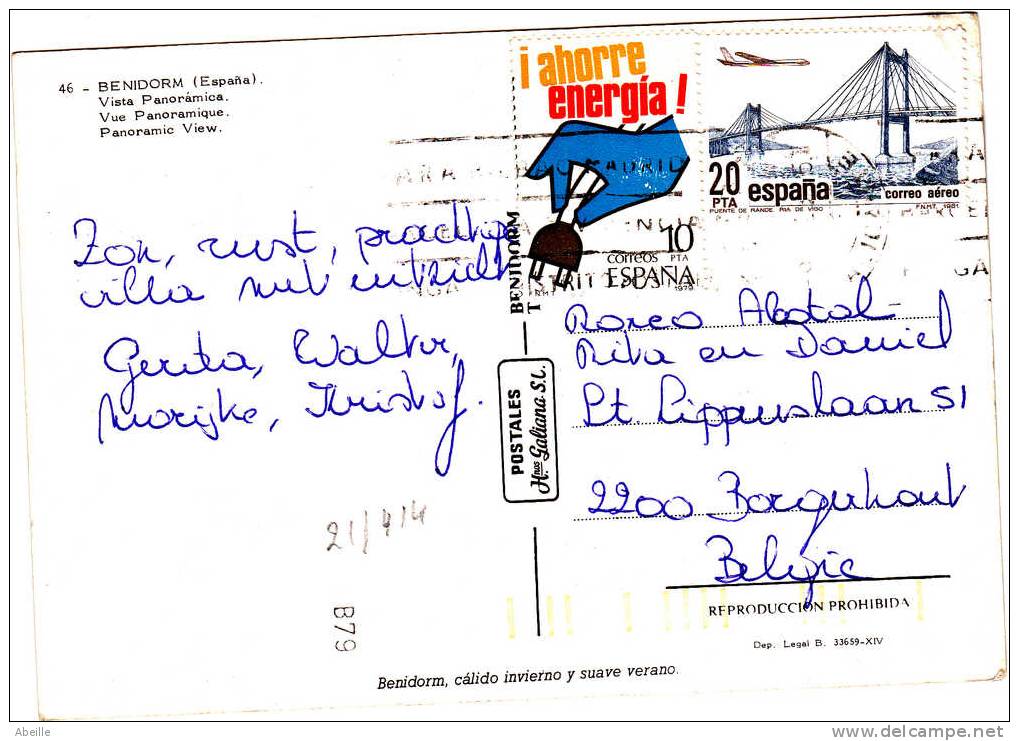 46 - BENIDORM (España).
Vista Panorámica.
Vue Panoramique.
Panoramic View.
¡ahorre
energía!
10
correos PTA
ESPAÑA
1979
20
PTA
españa
correo aéreo
PUENTE DE RANDE. RIA DE VIGO
F.N.M.T. 1981
MADRID
Zon, rust, prachtige
villa met
Gerita, Walter,
Marijke, Kristof.
BENIDORM
POSTALES
Hnos. Galiana S.L.
Rita en Daniel
St. Lippenslaan 51
2200 Borgerhout
België
21/414
B79
REPRODUCCION PROHIBIDA
Dep. Legal B. 33659-XIV
Benidorm, cálido invierno y suave verano.
Abeille
delcampe.net